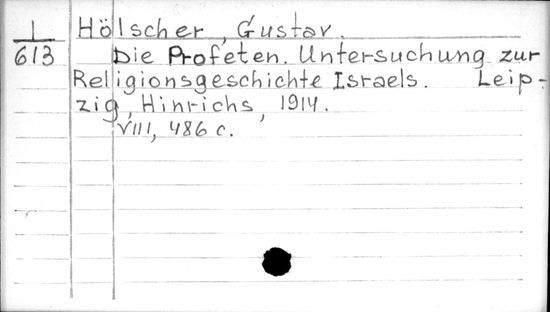 1 Hölscher, Gustav.
613 Die Profeten. Untersuchung zur
Religionsgeschichte Israels. Leip-
zig, Hinrichs, 1914.
VIII, 486 c.